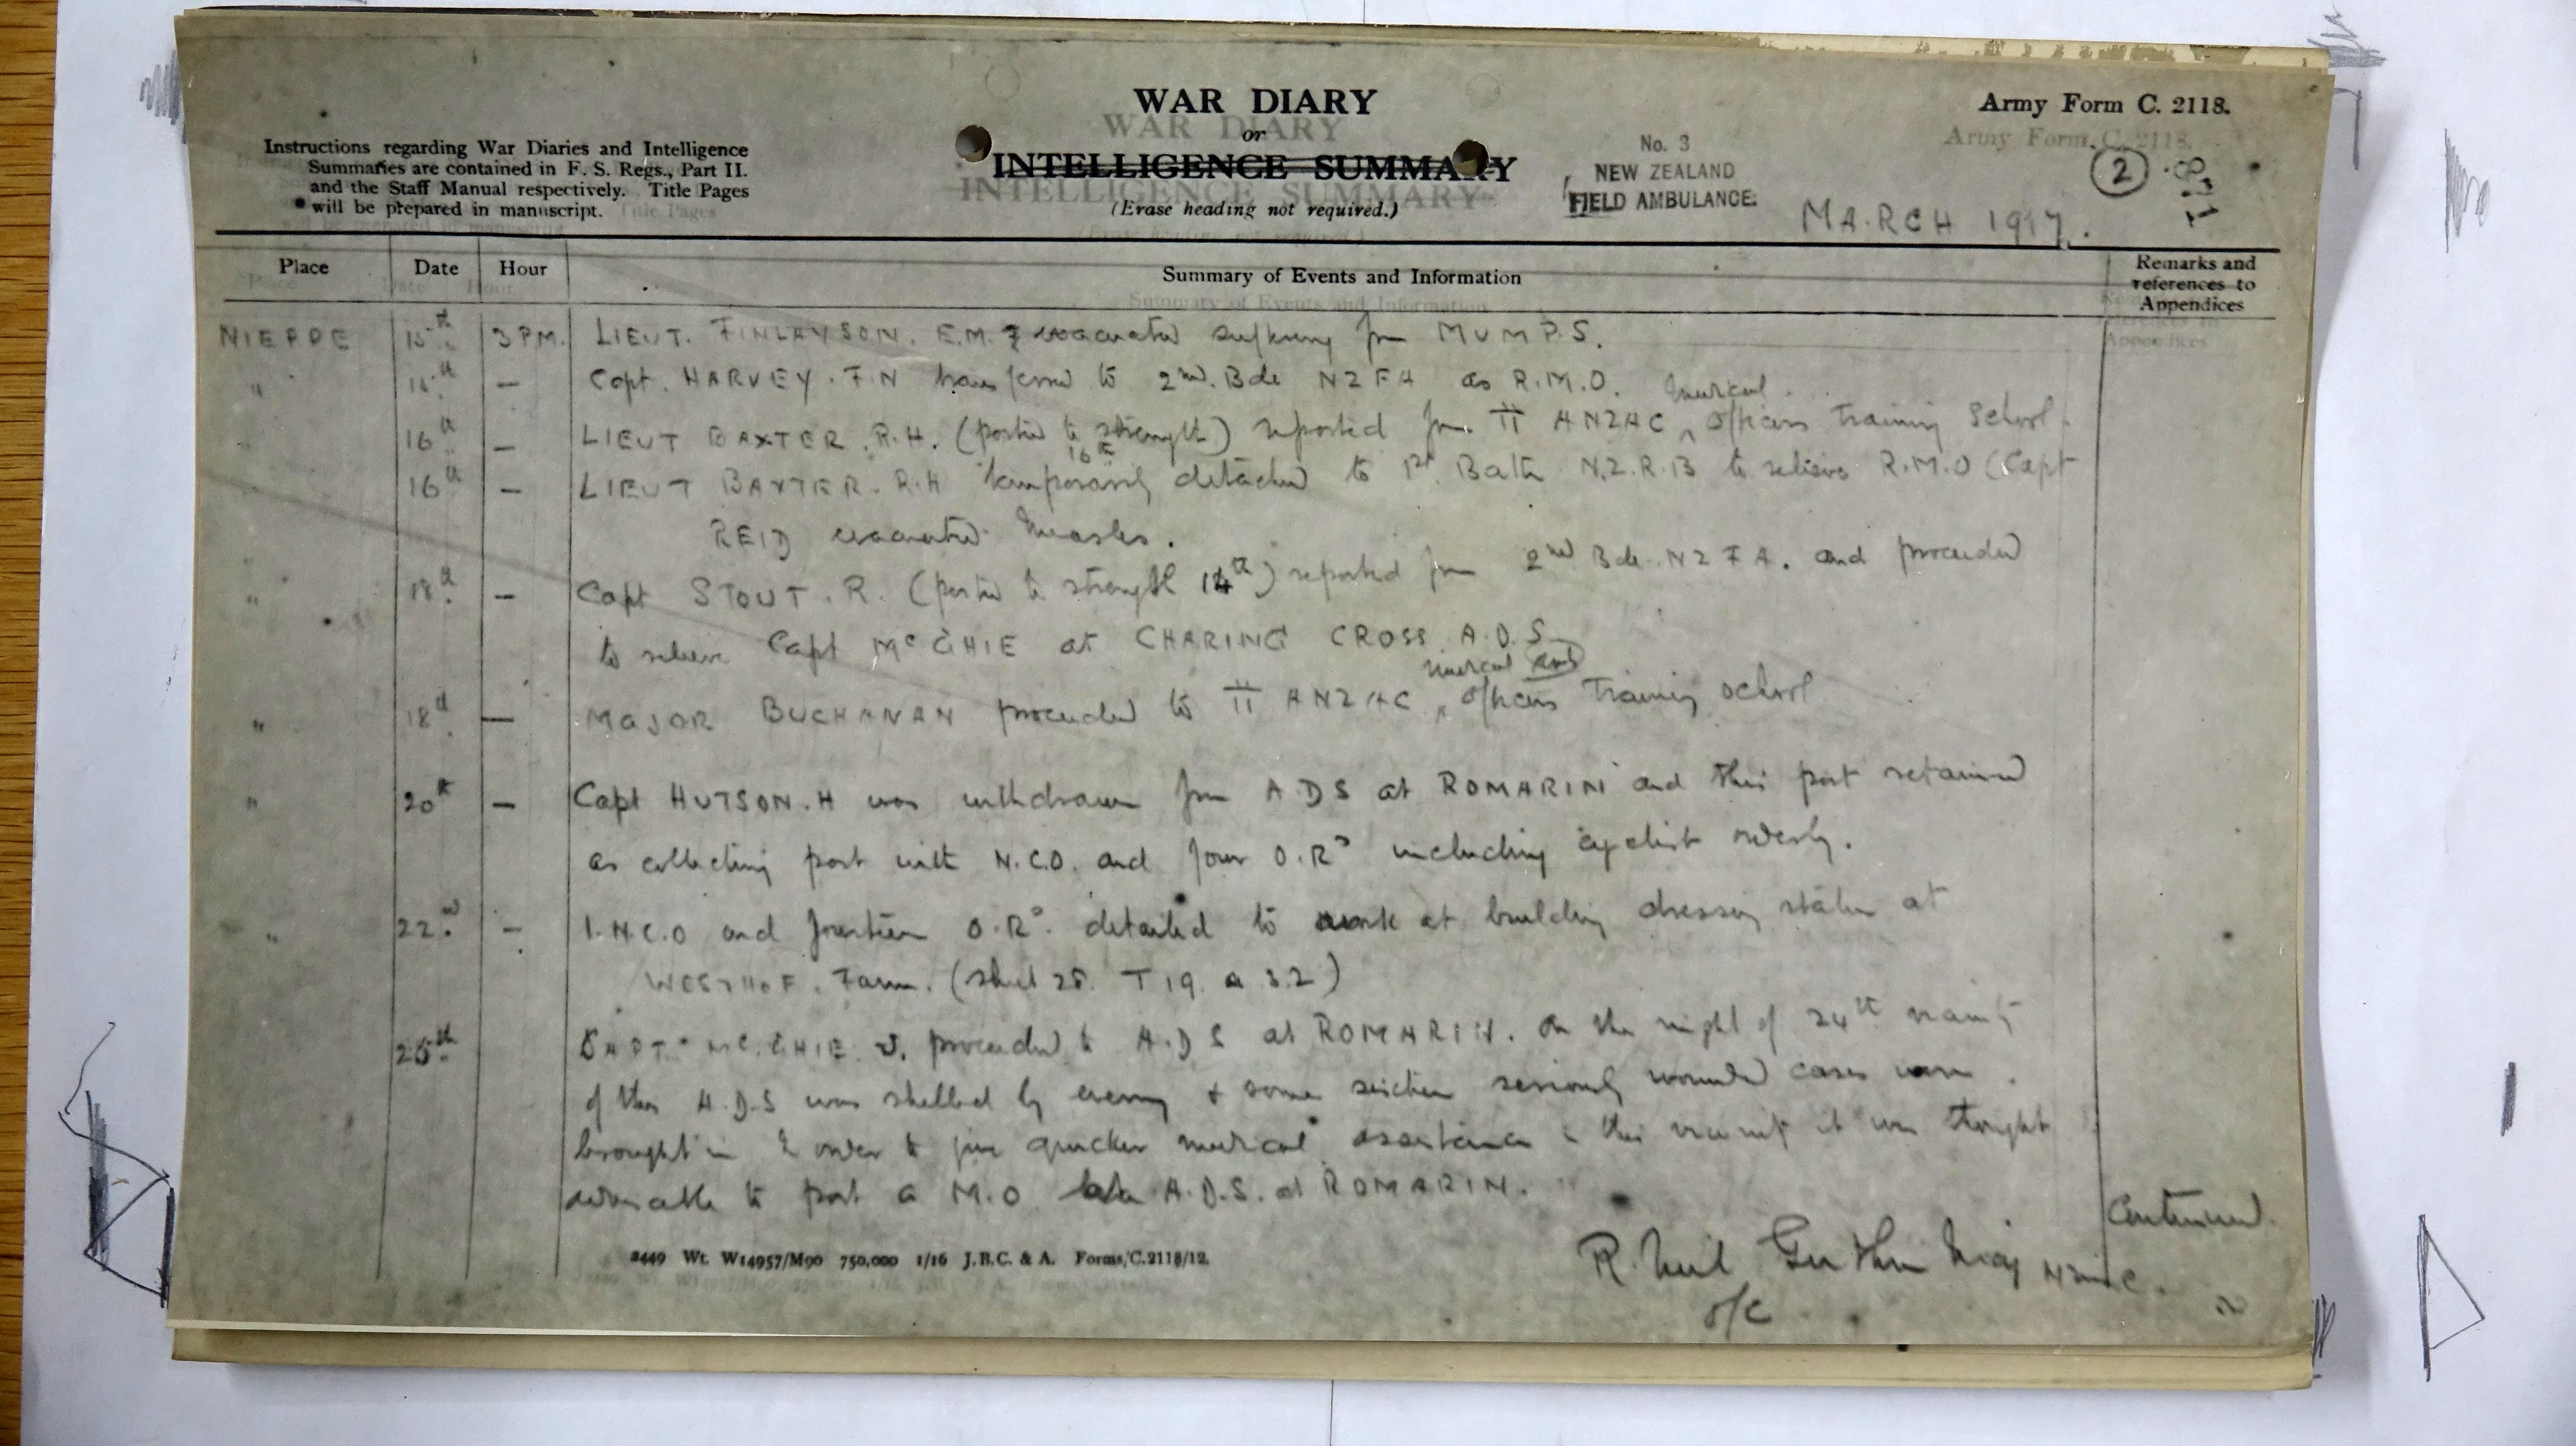 WAR DIARY
or
INTELLIGENCE SUMMARY
(Erase heading not required.)
Army Form C. 2118.
Instructions regarding War Diaries and Intelligence
Summaries are contained in F. S. Regs., Part II.
and the Staff Manual respectively. Title Pages
will be prepared in manuscript.
No. 3
NEW ZEALAND
FIELD AMBULANCE.
MARCH 1917.
2
Place Date Hour Summary of Events and Information Remarks and references to Appendices
NIEPPE 15th 3 PM. LIEUT. FINLAYSON. E.M. evacuated suffering from MUMPS.
" — Capt. HARVEY. F.N transferred to 2nd. Bde NZFA as R.M.O.
medical
16th — LIEUT BAXTER. R.H. (posted to strength) reported from II ANZAC officers Training School.
16th
16th — LIEUT BAXTER. R.H temporarily detached to 1st Battn N.Z.R.B to relieve R.M.O (Capt
REID evacuated measles.
" 18th — Capt STOUT. R. (posted to strength 14th) reported from 2nd Bde. NZFA. and proceeded
to relieve Capt McGHIE at CHARING CROSS A.D.S
medical
" 18th — MAJOR BUCHANAN proceeded to II ANZAC officers Training school
" 20th — Capt HUTSON. H was withdrawn from ADS at ROMARIN and this post retained
as collecting post with N.C.O. and four O.Rs including cyclist orderly.
" 22nd — 1. N.C.O and fourteen O.Rs. detailed to work at building dressing station at
WESTHOF. Farm. (sheet 28. T 19. a 3.2)
25th CAPT. McGHIE. J. proceeded to A.D.S at ROMARIN. On the night of 24th vicinity
of this A.D.S was shelled by enemy & some sixteen seriously wounded cases were
brought in. In order to give quicker medical assistance in this vicinity it was thought
advisable to post a M.O. A.D.S. at ROMARIN.
Continued.
2449 Wt. W14957/M90 750,000 1/16 J.B.C. & A. Forms/C.2118/12.
R. Neil Guthrie Maj NZMC.
o/c